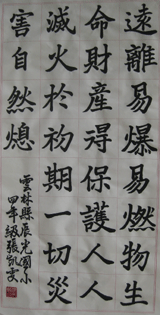 遠離易爆易燃物生
命財產得保護人人
滅火於初期一切災
害自然熄
雲林縣辰光國小
甲年級張凱雯